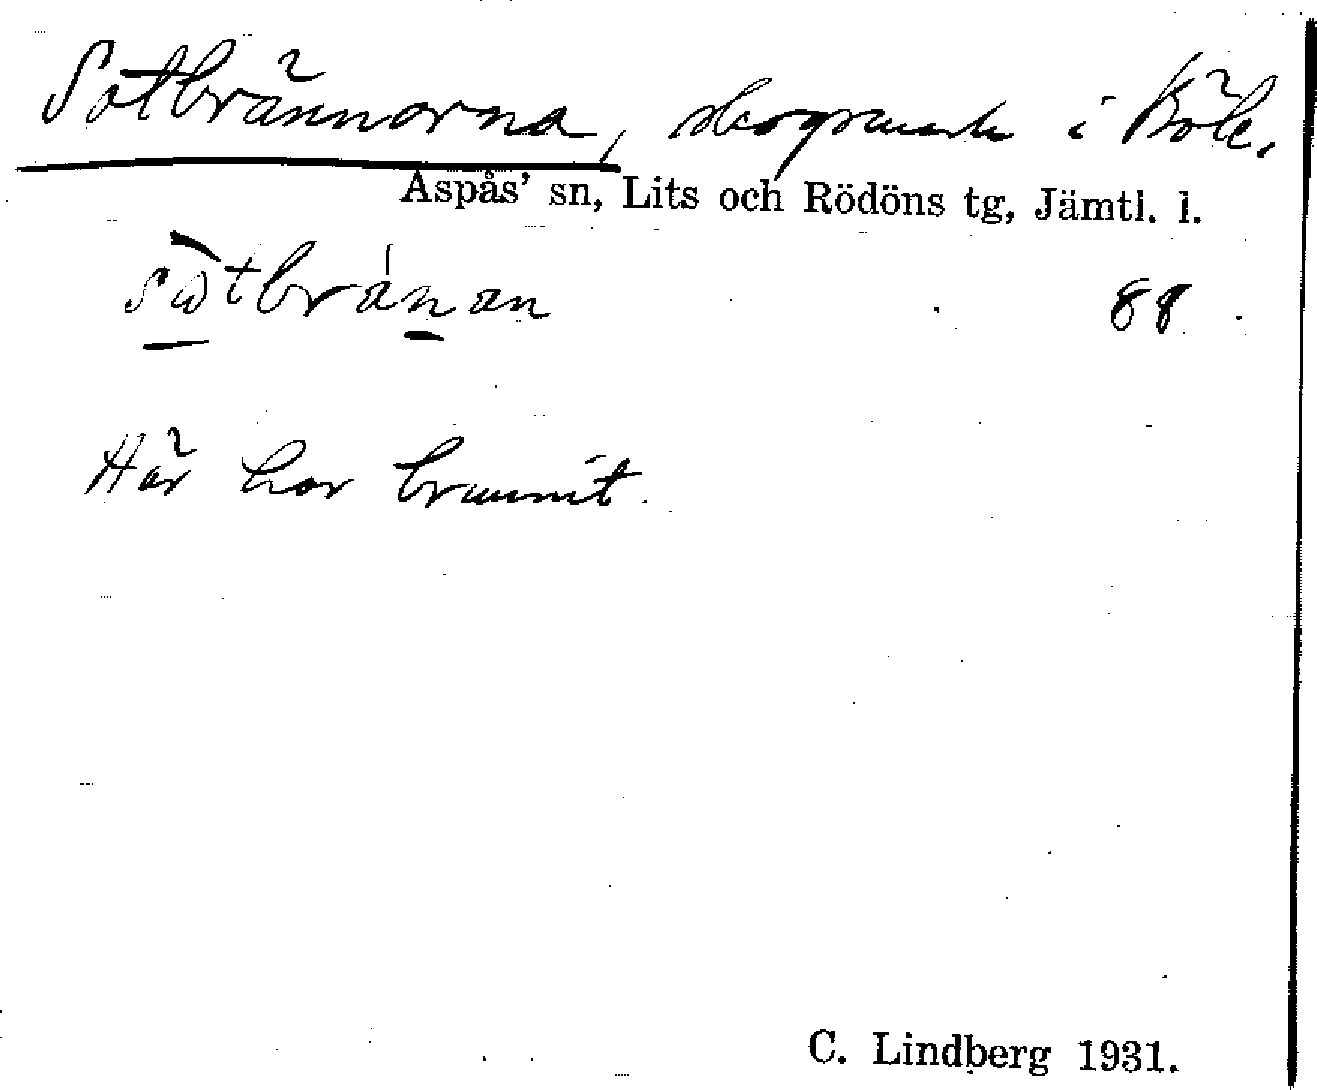 Sotbrännorna, skogsmark i Böle.
Aspås' sn, Lits och Rödöns tg, Jämtl. l.
sὼtbránan 88
Här har brunnit.
C. Lindberg 1931.